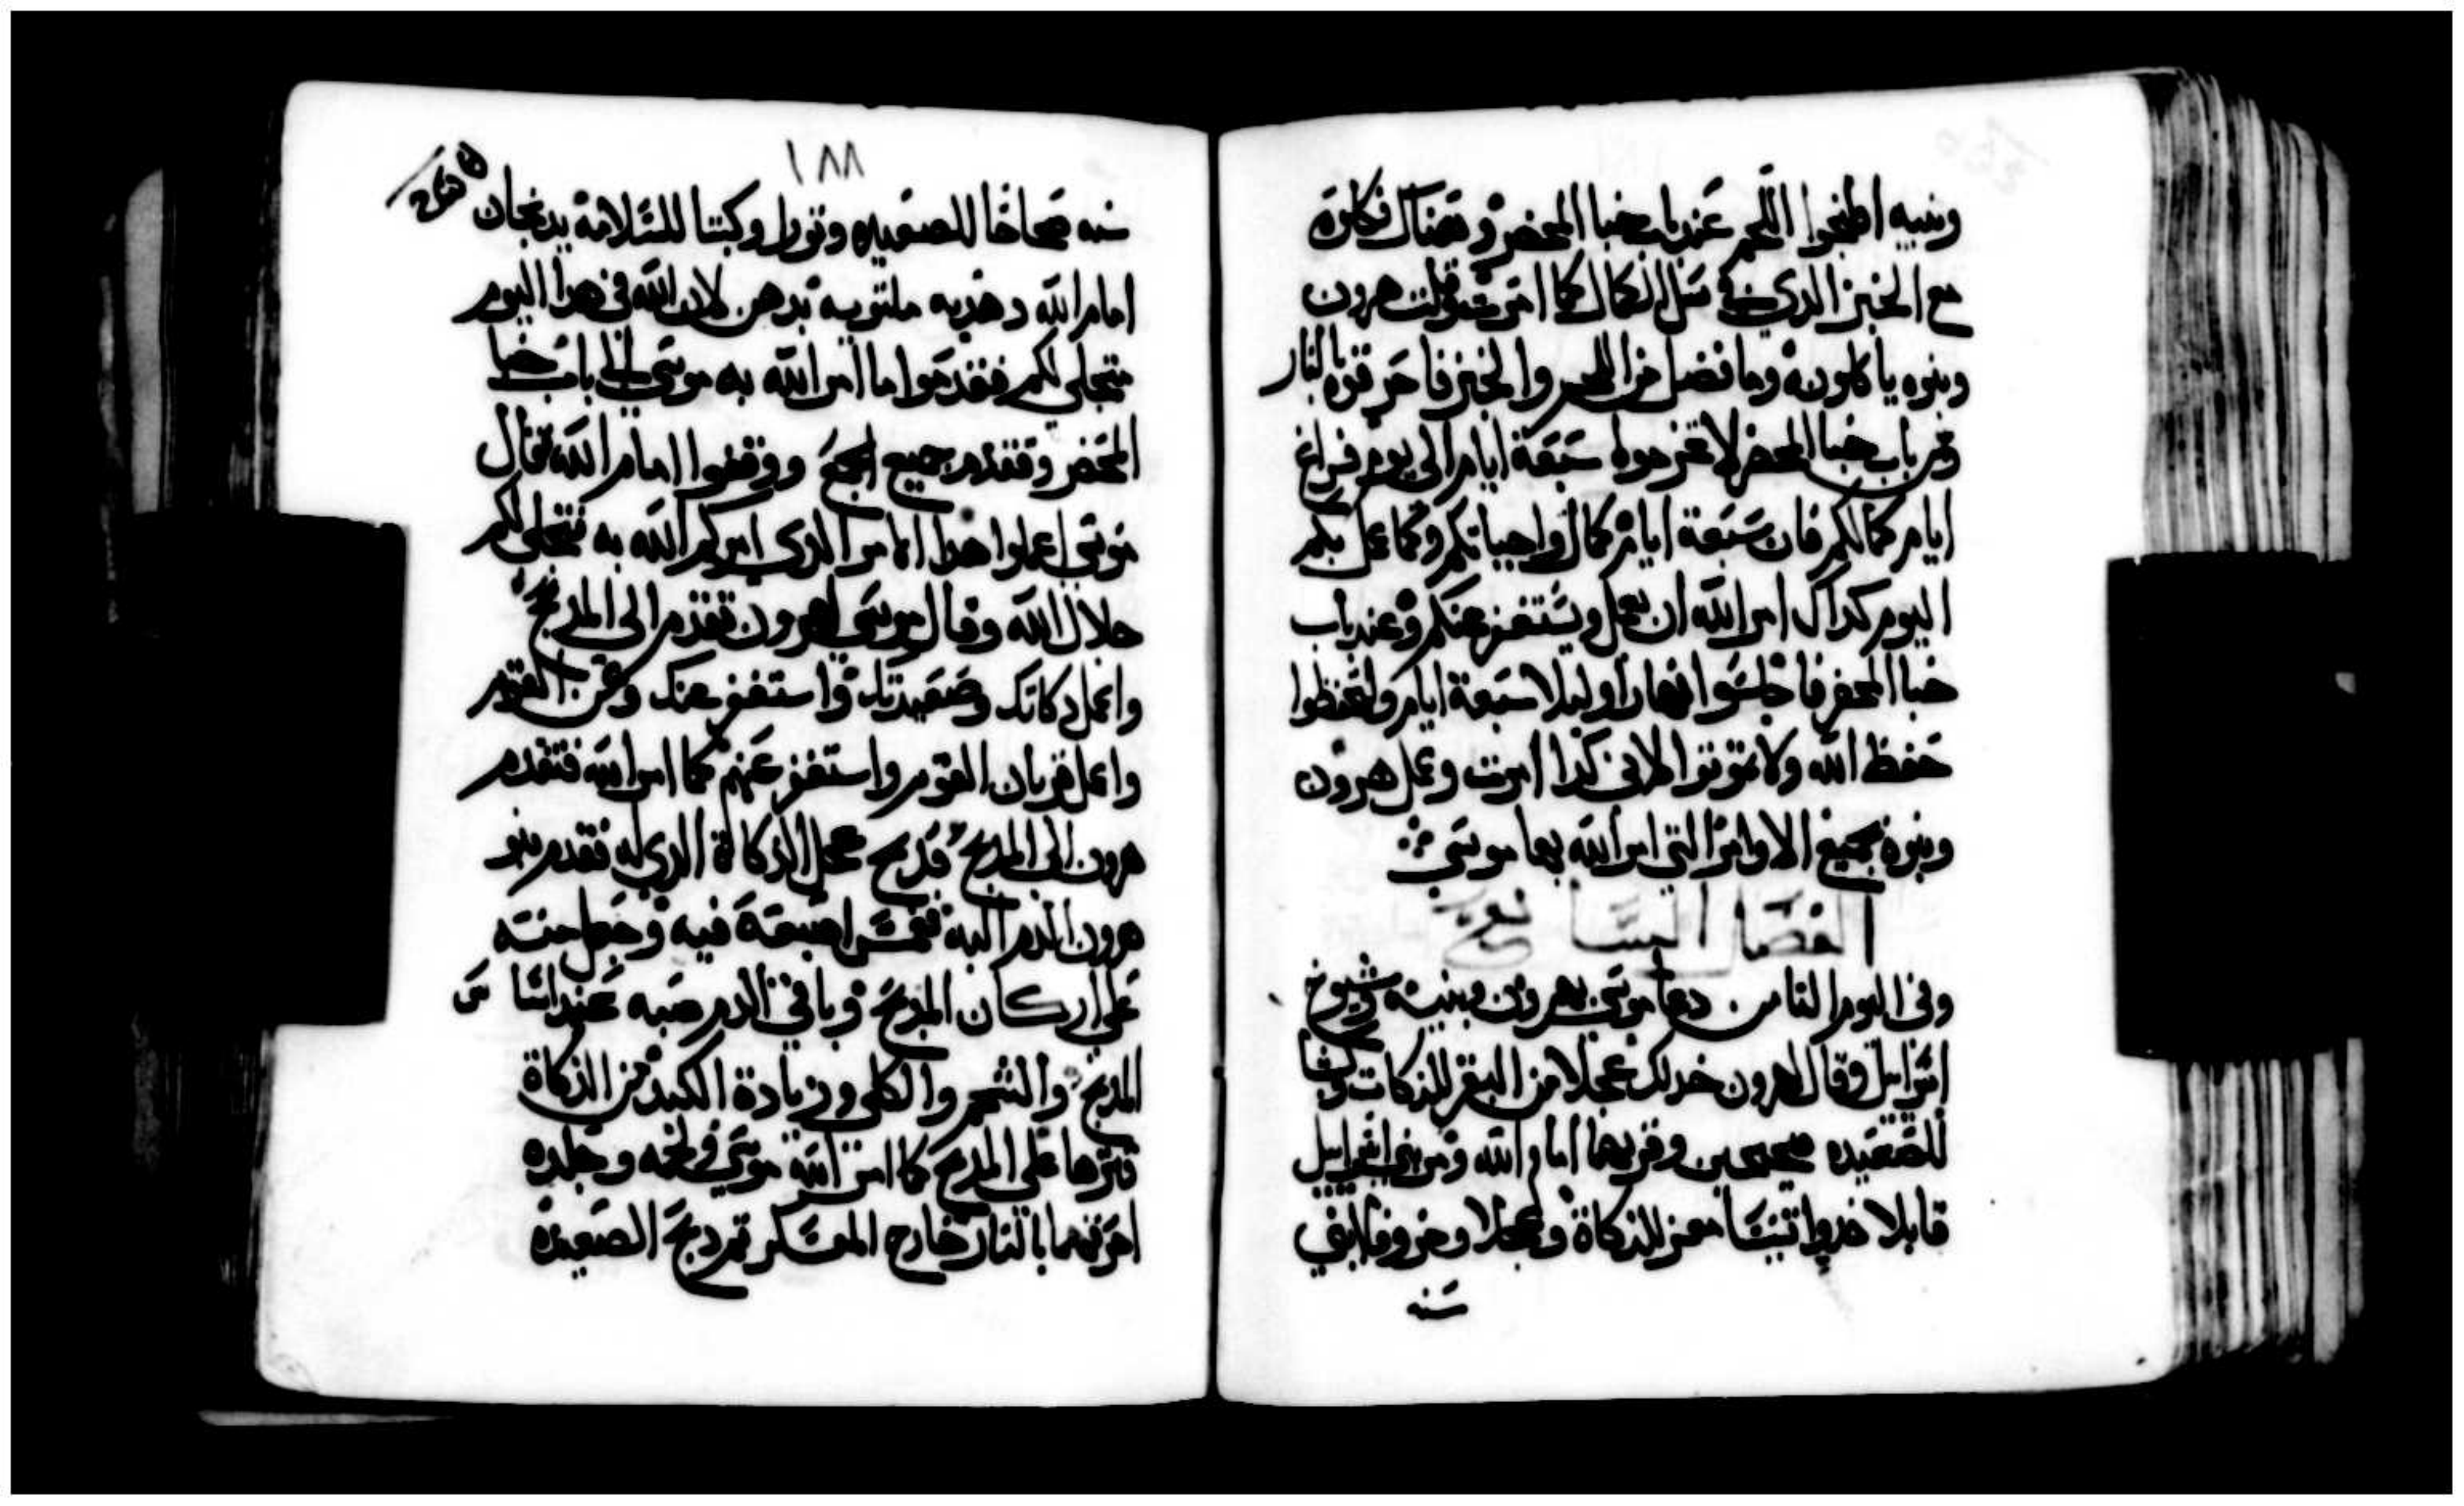 وبنيه اطبخوا اللحم عند باب خبا المحضر وهناك فكلوه
مع الخبز الدي في سل الكمال كما امرت وقلت هرون
وبنوه ياكلونه وما فضل من اللحم والخبز فاحرقوه بالنار
ومن باب خبا المحضر لا تخرجوا سبعة ايام الى يوم فراغ
ايام كمالكم فان سبعة ايام كمال واجباتكم وكما عمل بكم
اليوم كداك امر الله ان يعمل ويستغفر عنكم وعند باب
خبا المحضر فاجلسوا نهارا وليلا سبعة ايام ولتحفظوا
حفظ الله ولا تموتوا لاني كدا امرت وعمل هرون
وبنوه جميع الاوامر التي امر الله بها موسى
الفصل التاسع
وفي اليوم التامن دعا موسى بهرون وبنيه وشيوخ
اسرائيل وقال لهرون خد لك عجلا من البقر للدكات وكبشا
للصعيده صحيحين وقربهما امام الله ومر بني اسرائيل
قايلا خدوا تيسا معز للدكاة وعجلا وخروفا ابني
سنه
١٨٨
سنه صحاحا للصعيده وتورا وكبشا للسلامة يدبحان
امام الله وهديه ملتوته بدهن لان الله في هدا اليوم
متجلي لكم فقدموا ما امر الله به موسى الى باب خبا
المحضر وتقدم جميع الجمع ووقفوا امام الله فقال
موسى اعملوا هدا الامر الدي امركم الله به فتجلى لكم
جلال الله وقال موسى لهرون تقدم الى المدبح
واعمل دكاتك وصعيدتك واستغفر عنك وعن القوم
واعمل قربان القوم واستغفر عنهم كما امر الله فتقدم
هرون الى المدبح فدبح عجل الدكاة الدي له فقدم بنو
هرون الدم اليه فغمس اصبعه فيه وجعل منه
على اركان المدبح وباقي الدم صبه عند اسا س
المدبح والشحم والكلى وزيادة الكبد من الدكاة
قترها على المدبح كما امر الله موسى ولحمه وجلده
احرقهما بالنار خارج المعسكر تم دبح الصعيده